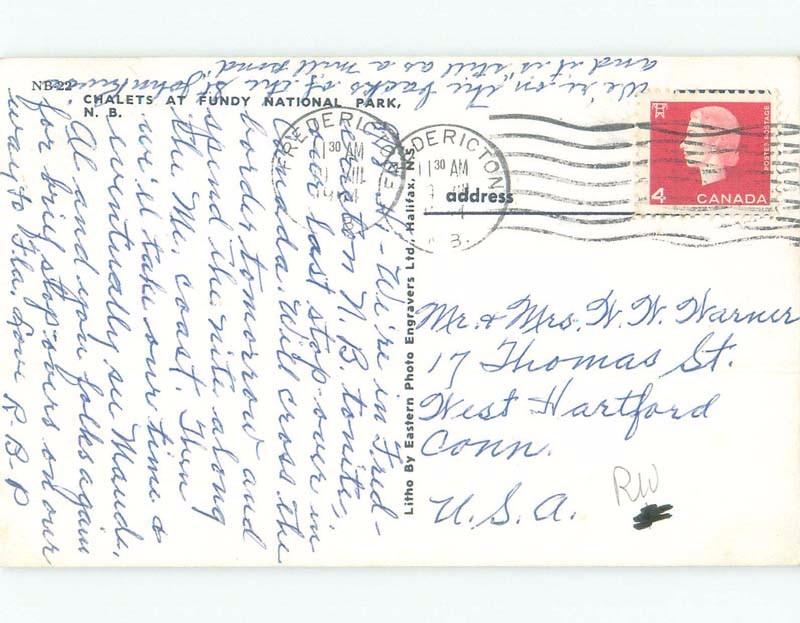 NB-22
CHALETS AT FUNDY NATIONAL PARK,
N. B.
Hi - We're in Fred-
ericton N.B. tonite,
our last stop-over in
Canada. Will cross the
border tomorrow and
spend the nite along
the Me. coast. Then
we'll take our time &
eventually su Maude,
Al and you folks again
for brief stop-overs on our
way to Fla. Love R-B-P
We're on the backs of the St. John River
and it is still as a mill pond.
Litho By Eastern Photo Engravers Ltd., Halifax, N.S.
FREDERICTON
11 30 AM
FREDERICTON
11 30 AM
B.
address
POSTES POSTAGE
4 CANADA
Mr. & Mrs. W. W. Warner
17 Thomas St.
West Hartford
Conn.
U.S.A.
RW